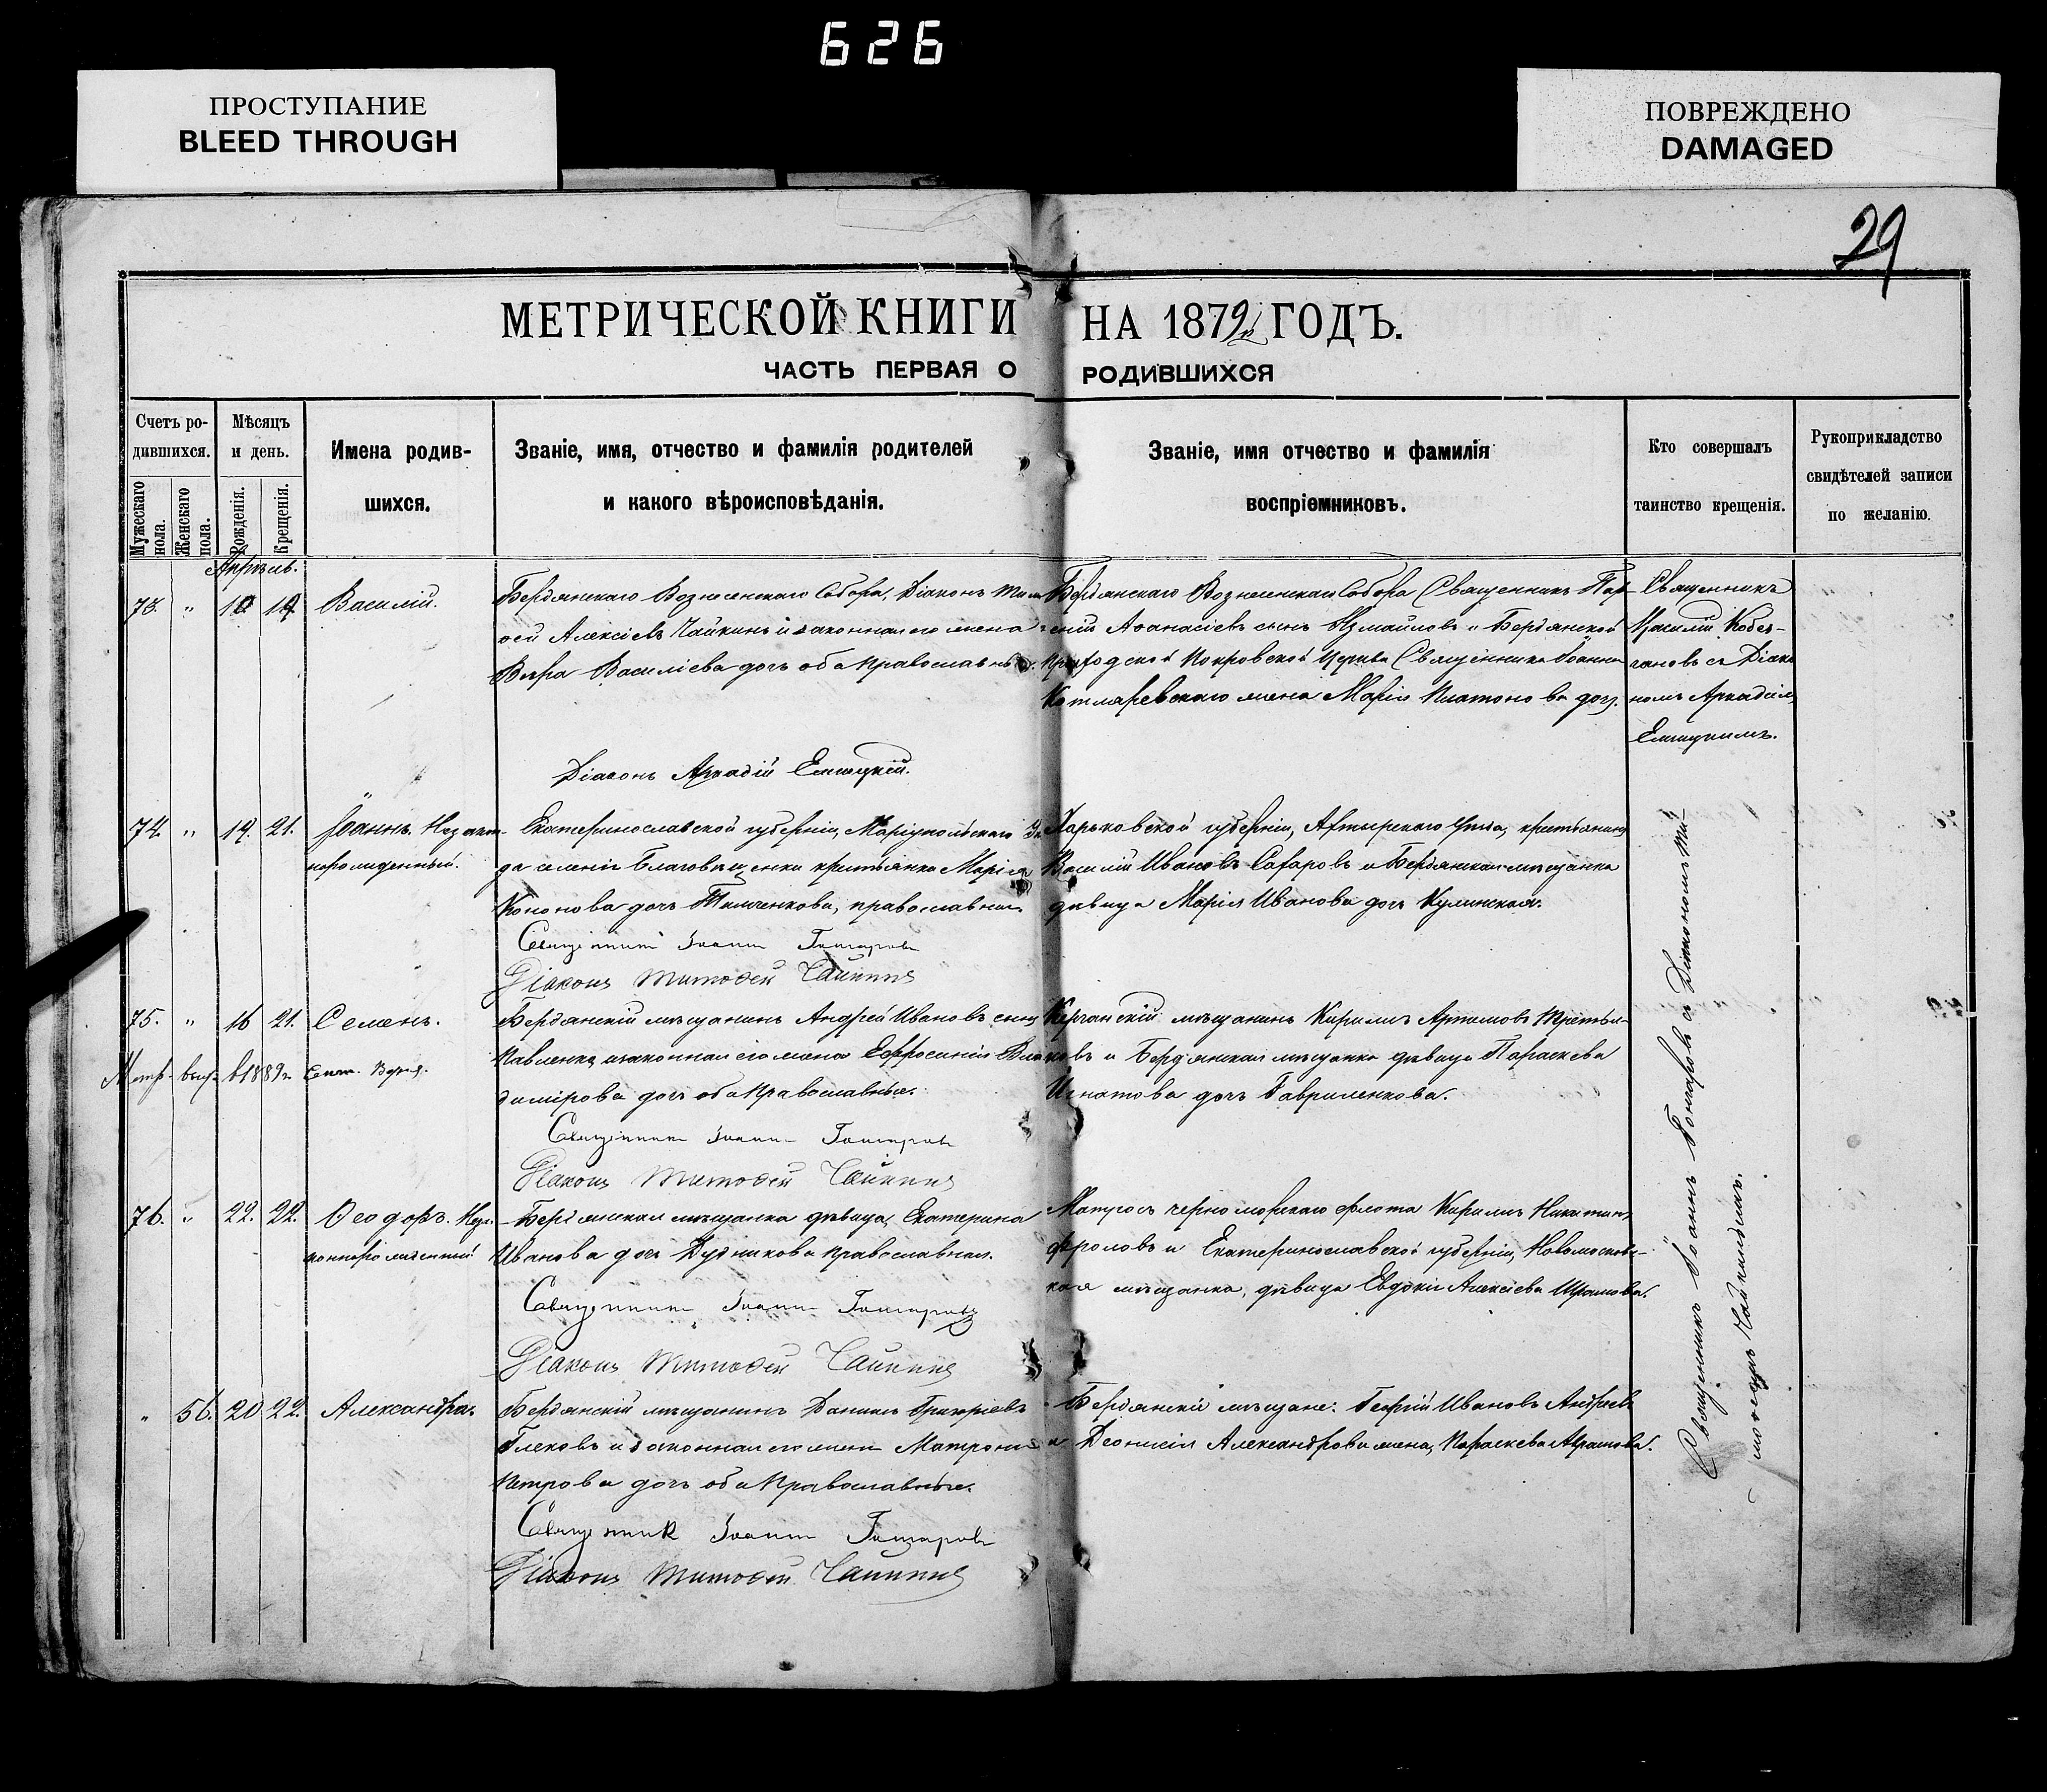 626
ПРОСТУПАНИЕ
BLEED THROUGH
ПОВРЕЖДЕНО
DAMAGED
29
МЕТРИЧЕСКОЙ КНИГИ НА 1872 ГОДЪ.
ЧАСТЬ ПЕРВАЯ О РОДИВШИХСЯ
Счетъ ро-
дившихся.
Мужескаго пола.
Женскаго пола.
Мѣсяцъ
и день.
Рожденія.
Крещенія.
Имена родив-
шихся.
Званіе, имя, отчество и фамилія родителей
и какого вѣроисповѣданія.
Званіе, имя отчество и фамилія
воспріемниковъ.
Кто совершалъ
таинство крещенія.
Рукоприкладство
свидѣтелей записи
по желанію.
Апрѣль.
73. " Василій.
Бердянскаго Вознесенскаго Собора, Діаконъ Тим
оѳей Алексіевъ Чайкинъ и законная его жена
Вѣра Василіева дочь оба православные.
Бердянскаго Вознесенскаго Собора Священникъ Пар-
ѳеній Аѳанасіевъ сынъ Измайловъ и Бердянской
Покровской Церкви Священника Іоанна
Котляревскаго жена Марія Платонова дочь.
Священникъ
Василій
съ Діако
номъ Аркадіемъ
Діаконъ Аркадій
74. " 19. 21. Іоаннъ. Незакон-
норожденный.
Екатеринославской губерніи, Маріупольскаго Уѣ
да селенія Благовѣщенки крестьянка Марія
Кононова дочь Тимченкова, православная.
Харьковской губерніи, Ахтырскаго Уѣзда, крестьянинъ
Василій Ивановъ Сахаровъ и Бердянская мѣщанка
дѣвица Марія Иванова дочь Кулинская.
Священникъ Іоаннъ Гончаровъ
Діаконъ Тимоѳей Чайкинъ
75. " 16 21. Семенъ.
Метр. выд. в 1889 г.
Бердянскій мѣщанинъ Андрей Ивановъ сынъ
Павленко и законная его жена Евфросинія Вла
димірова дочь оба православные.
Керчанскій мѣщанинъ Кирилъ Артемовъ Третья-
ковъ и Бердянская мѣщанка дѣвица Параскева
Игнатова дочь Гавриленкова.
Священникъ Іоаннъ Гончаровъ
Діаконъ Тимоѳей Чайкинъ
76. " 22. 22. Ѳеодоръ. Неза-
коннорожденный.
Бердянская мѣщанка дѣвица, Екатерина
Иванова дочь Дудникова православная.
Матросъ черноморскаго флота Кирилъ Никитинъ
Фроловъ и Екатеринославской губерніи, Новомосковс-
кая мѣщанка, дѣвица Евдокія Алексіева Шрамова.
Священникъ Іоаннъ Гончаровъ
Діаконъ Тимоѳей Чайкинъ
" 56. 20 22. Александра.
Бердянскій мѣщанинъ Даніилъ Григоріевъ
Глековъ и законная его жена Матрона
Петрова дочь оба православные.
Бердянскіе мѣщане: Георгій Ивановъ Андреевъ
и Діонисія Александрова жена, Параскева Абрамова.
Священникъ Іоаннъ Гончаровъ
Діаконъ Тимоѳей Чайкинъ
Священникъ Іоаннъ Гончаровъ съ Діакономъ Ти-
моѳеемъ Чайкинымъ.